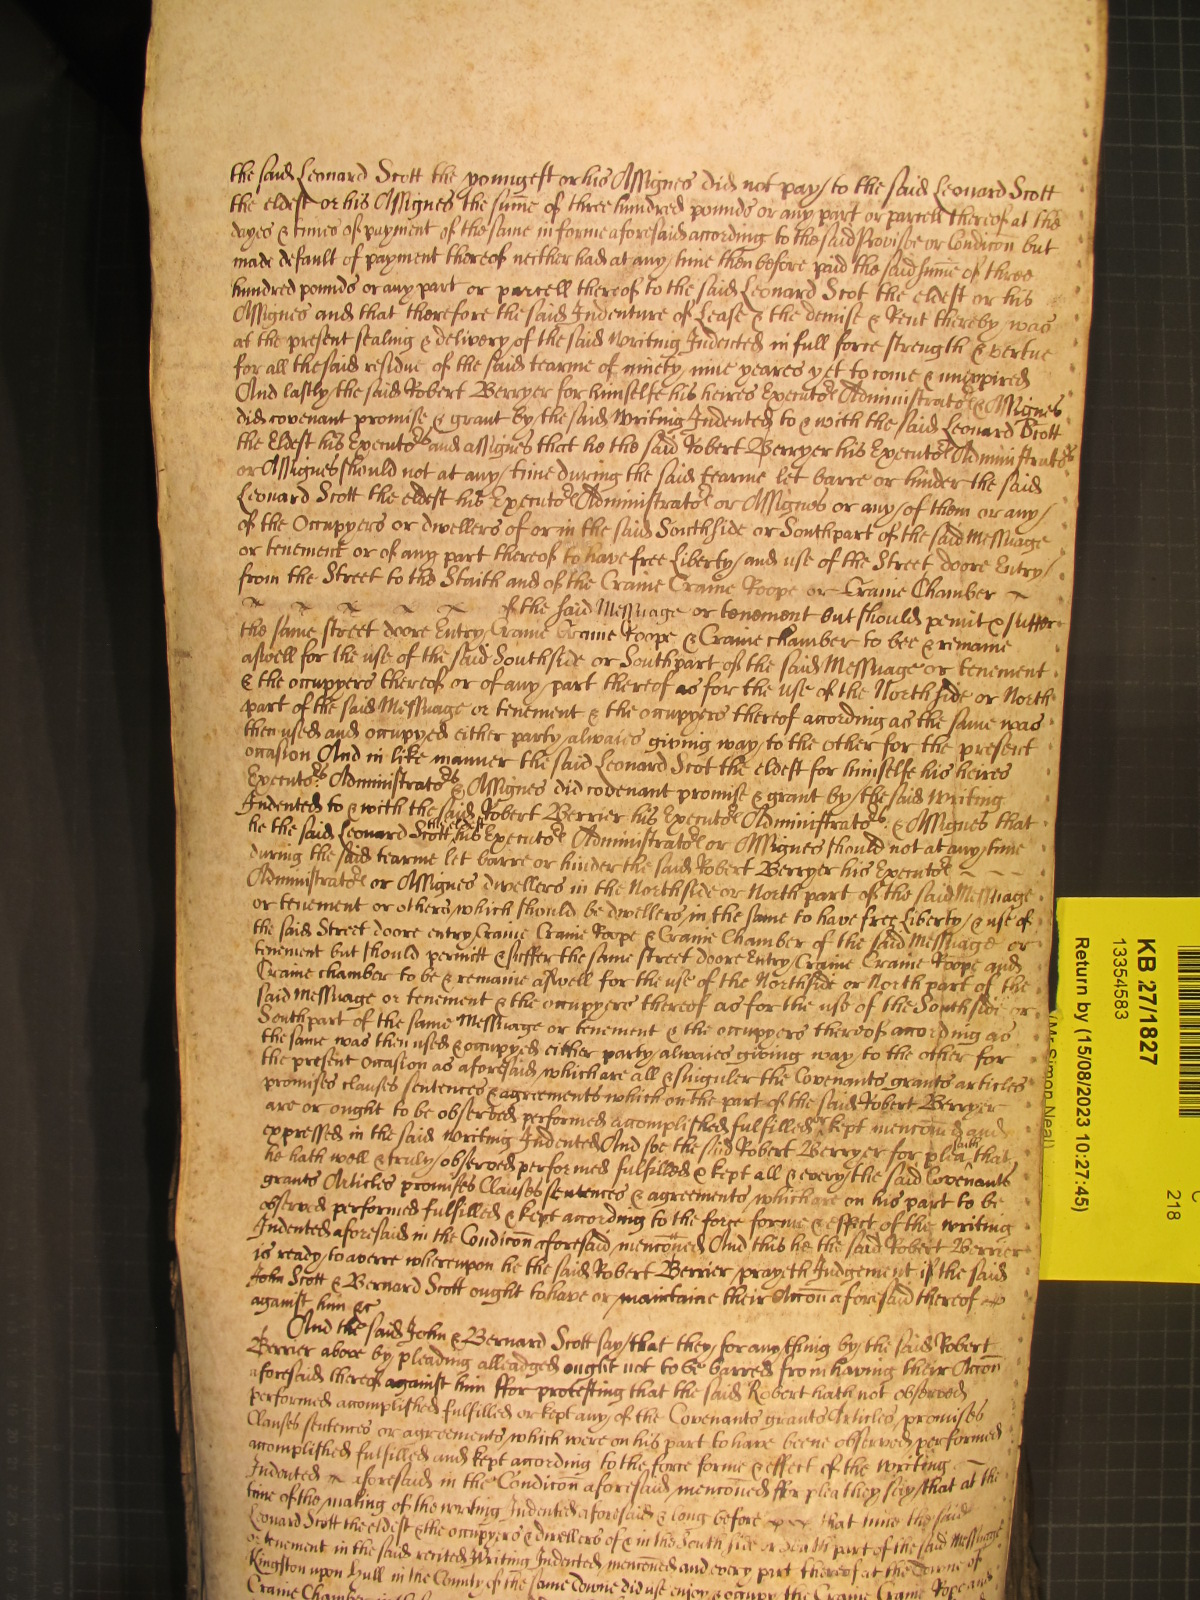 the said Leonard Scott the youngest or his Assignes did not pay to the said Leonard Scott
the eldest or his Assignes the sume of three hundred pounds or any part or parcell thereof at the
dayes & times of payment of the same in forme aforesaid according to the said Provisoe or Condicon but
made default of payment thereof neither had at any time then before paid the said sume of three
hundred pounds or any part or parcell thereof to the said Leonard Scot the eldest or his
Assignes and that therefore the said Indenture of Lease & the demise & Rent thereby was
at the present sealing & delivery of the said Writing Indented in full force strength & vertue
for all the said residue of the said tearme of ninety nine yeares yet to come & unexpired
And lastly the said Robert Berryer for himselfe his heires Executors Administrators & Assignes
did covenant promise & grant by the said Writing Indented to & with the said Leonard Scott
the Eldest his Executors and assignes that he the said Robert Berryer his Executors Administrators
or Assignes should not at any time during the said tearme let barre or hinder the said
Leonard Scott the eldest his Executors Administrators or Assignes or any of them or any
of the Occupyers or dwellers of or in the said Southside or Southpart of the said Messuage
or tenement or of any part thereof to have free Liberty and use of the Street doore Entry
from the Street to the Staith and of the Craine Craine Roope or Craine Chamber
of the said Messuage or tenement but should permit & suffer
the same street doore Entry Craine Craine Roope & Craine chamber to bee & remaine
aswell for the use of the said Southside or Southpart of the said Messuage or tenement
& the occupyers thereof or of any part thereof as for the use of the Northside or North
part of the said Messuage or tenement & the occupyers thereof according as the same was
then used and occupyed either party alwaies giving way to the other for the present
occasion And in like manner the said Leonard Scot the eldest for himselfe his heires
Executors Administrators & Assignes did covenant promise & grant by the said Writing
Indented to & with the said Robert Berrier his Executors Administrators & Assignes that
he the said Leonard Scott the eldest his Executors Administrators or Assignes should not at any time
during the said tearme let barre or hinder the said Robert Berryer his Executors
Administrators or Assignes dwellers in the Northside or North part of the said Messuage
or tenement or others which should be dwellers in the same to have free Liberty & use of
the said Street doore entry Craine Craine Roope & Craine Chamber of the said Messuage or
tenement but should permitt & suffer the same street doore Entry Craine Craine Roope and
Craine chamber to be & remaine aswell for the use of the Northside or North part of the
said Messuage or tenement & the occupyers thereof as for the use of the Southside or
Southpart of the same Messuage or tenement & the occupyers thereof according as
the same was then used & occupyed either party alwaies giving way to the other for
the present occasion as aforesaid which are all & singuler the Covenants grants articles
promises clauses sentences & agreements which on the part of the said Robert Berryer
are or ought to be observed performed accomplished fulfilled & kept menconed and
expressed in the said writing Indented And soe the said Robert Berryer for plea saith that
he hath well & truly observed performed fulfilled & kept all & every the said Covenants
grants Articles promises Clauses sentences & agreements which are on his part to be
observed performed fulfilled & kept according to the force forme & effect of the writing
Indented aforesaid in the Condicon aforesaid menconed And this he the said Robert Berrier
is ready to averre whereupon he the said Robert Berrier prayeth Judgement if the said
John Scott & Bernard Scott ought to have or maintaine their Accon aforesaid thereof
against him &c
And the said John & Bernard Scott say that they for any thing by the said Robert
Berrier above by pleading alleadged ought not to be barred from having their Accon
aforesaid thereof against him ffor protesting that the said Robert hath not observed
performed accomplished fulfilled or kept any of the Covenants grants Articles promises
Clauses sentences or agreements which were on his part to have beene observed performed
accomplished fulfilled and kept according to the force forme & effect of the writing
Indented aforesaid in the Condicon aforesaid menconed ffor plea they say that at the
time of the making of the writing Indented aforesaid & long before that time the said
Leonard Scott the eldest & the occupyers & dwellers of & in the South side or South part of the said Messuage
or tenement in the said recited Writing Indented menconed and every part thereof at the Towne of
Kingston upon Hull in the County of the same Towne did use enjoy & occupy the Craine Craine Rope and
Craine Chamber
KB 27/1827
13354583
Return by (15/08/2023 10:27:45)
(Mr Simon Neal)
218